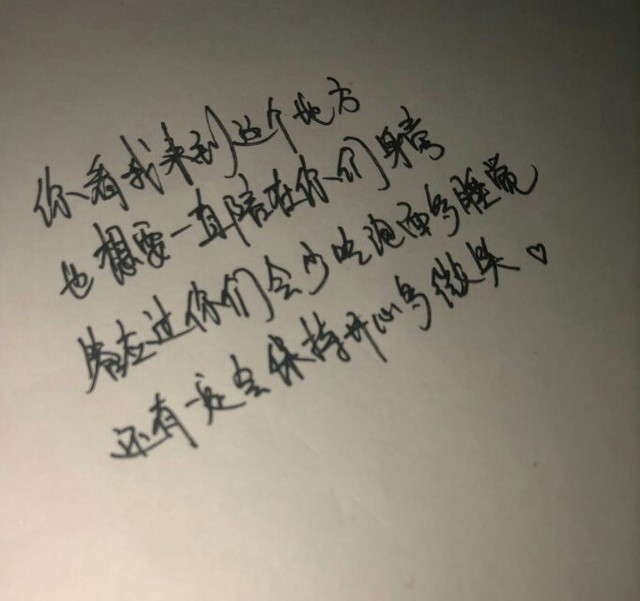 你看我来到这个地方
也想要一直陪在你们身旁
答应过你们会少吃泡面多睡觉
还有一定会保持开心多微笑♡